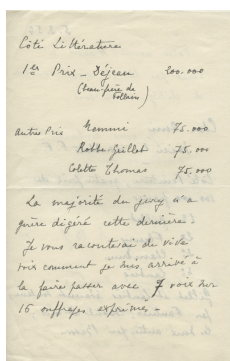 Côté Littérature
1er Prix - Déjean 200.000
(beau-frère de
Follain)
Autres Prix Memmi 75.000
Robbe Grillet 75.000
Colette Thomas 75.000
La majorité du jury n'a
guère digéré cette dernière !
Je vous raconterai de vive
voix comment je suis arrivé à
la faire passer avec 7 voix sur
15 suffrages exprimés -